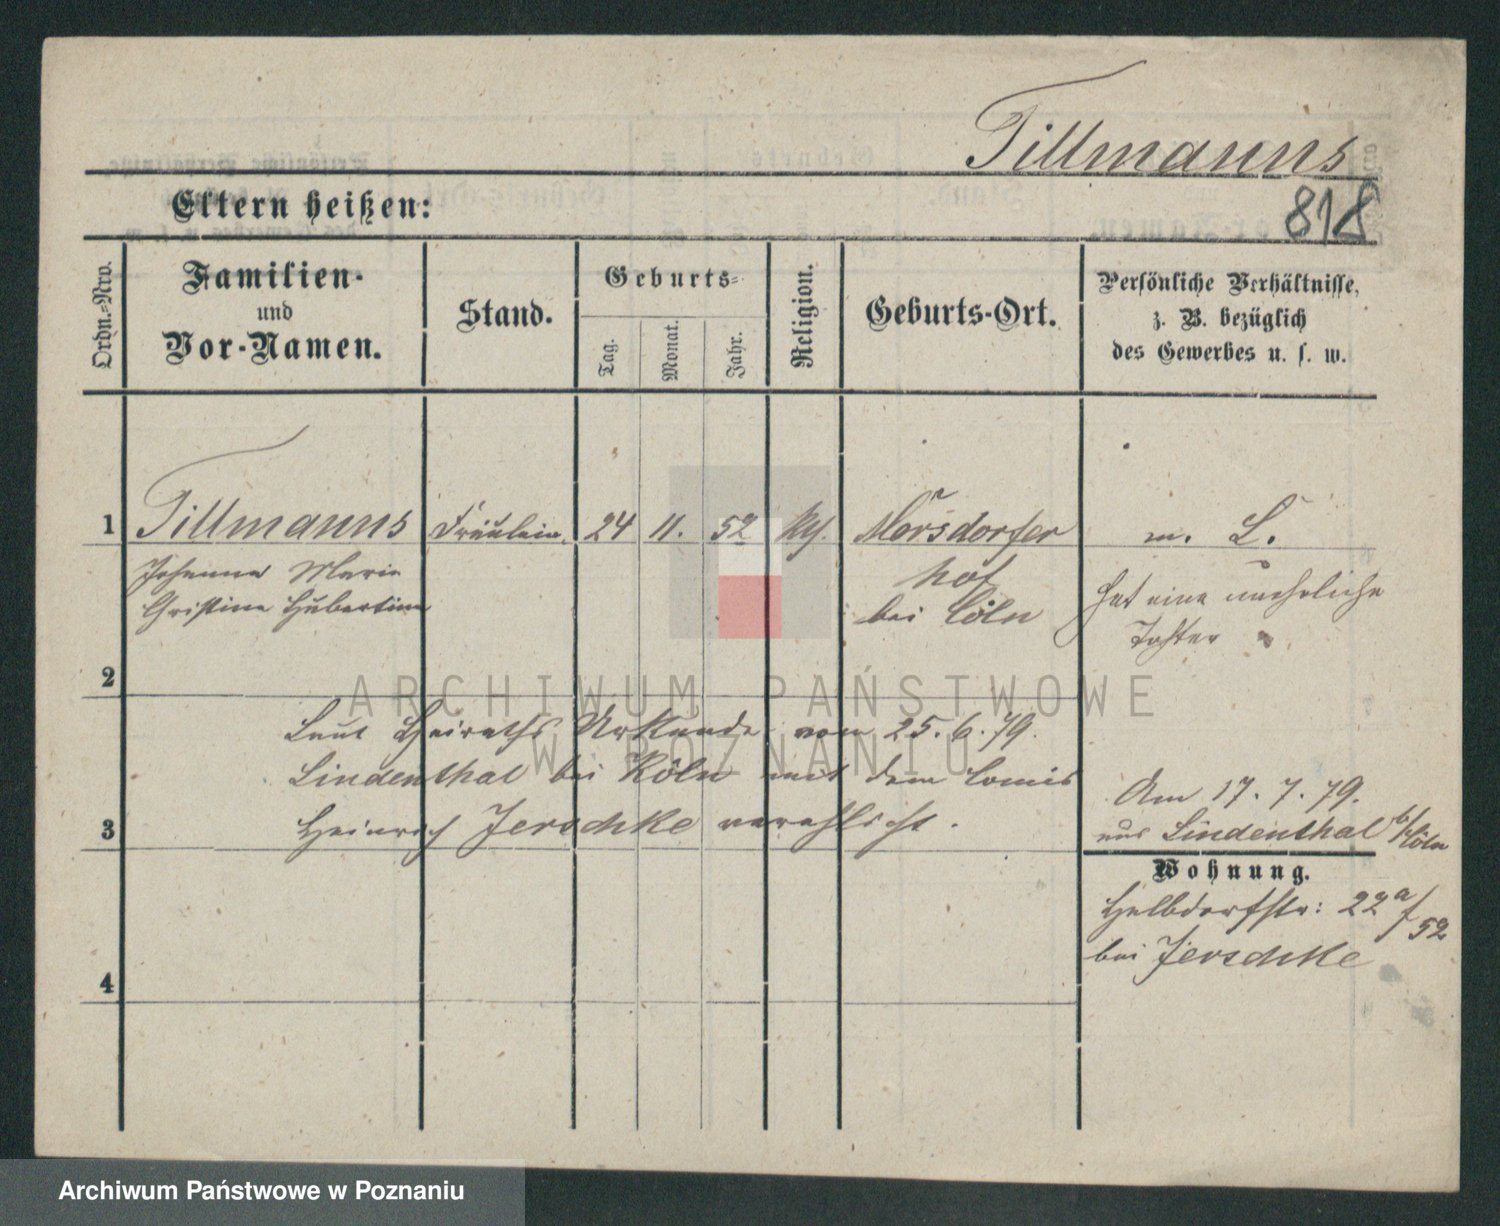 Tillmanns
818
Eltern heißen:
Ordn.-Nro.
Familien-
und
Vor-Namen.
Stand.
Geburts-
Tag.
Monat.
Jahr.
Religion.
Geburts-Ort.
Persönliche Verhältnisse,
z. B. bezüglich
des Gewerbes u. s. w.
1 Tillmanns Fräulein 24 11. 52 Morsdorfer m. L.
Johanna Maria hof hat eine uneheliche
Christine Hubertine bei Cöln Tochter
2
ARCHIWUM PAŃSTWOWE
W POZNANIU
Laut Heiraths Urkunde vom 25.6.79.
Lindenthal bei Köln mit dem Comis
3 Heinrich Jerschke verehlicht.
Am 17.7.79.
aus Lindenthal b/Köln
Wohnung.
Halbdorfstr: 22a/52
bei Jerschke
4
Archiwum Państwowe w Poznaniu